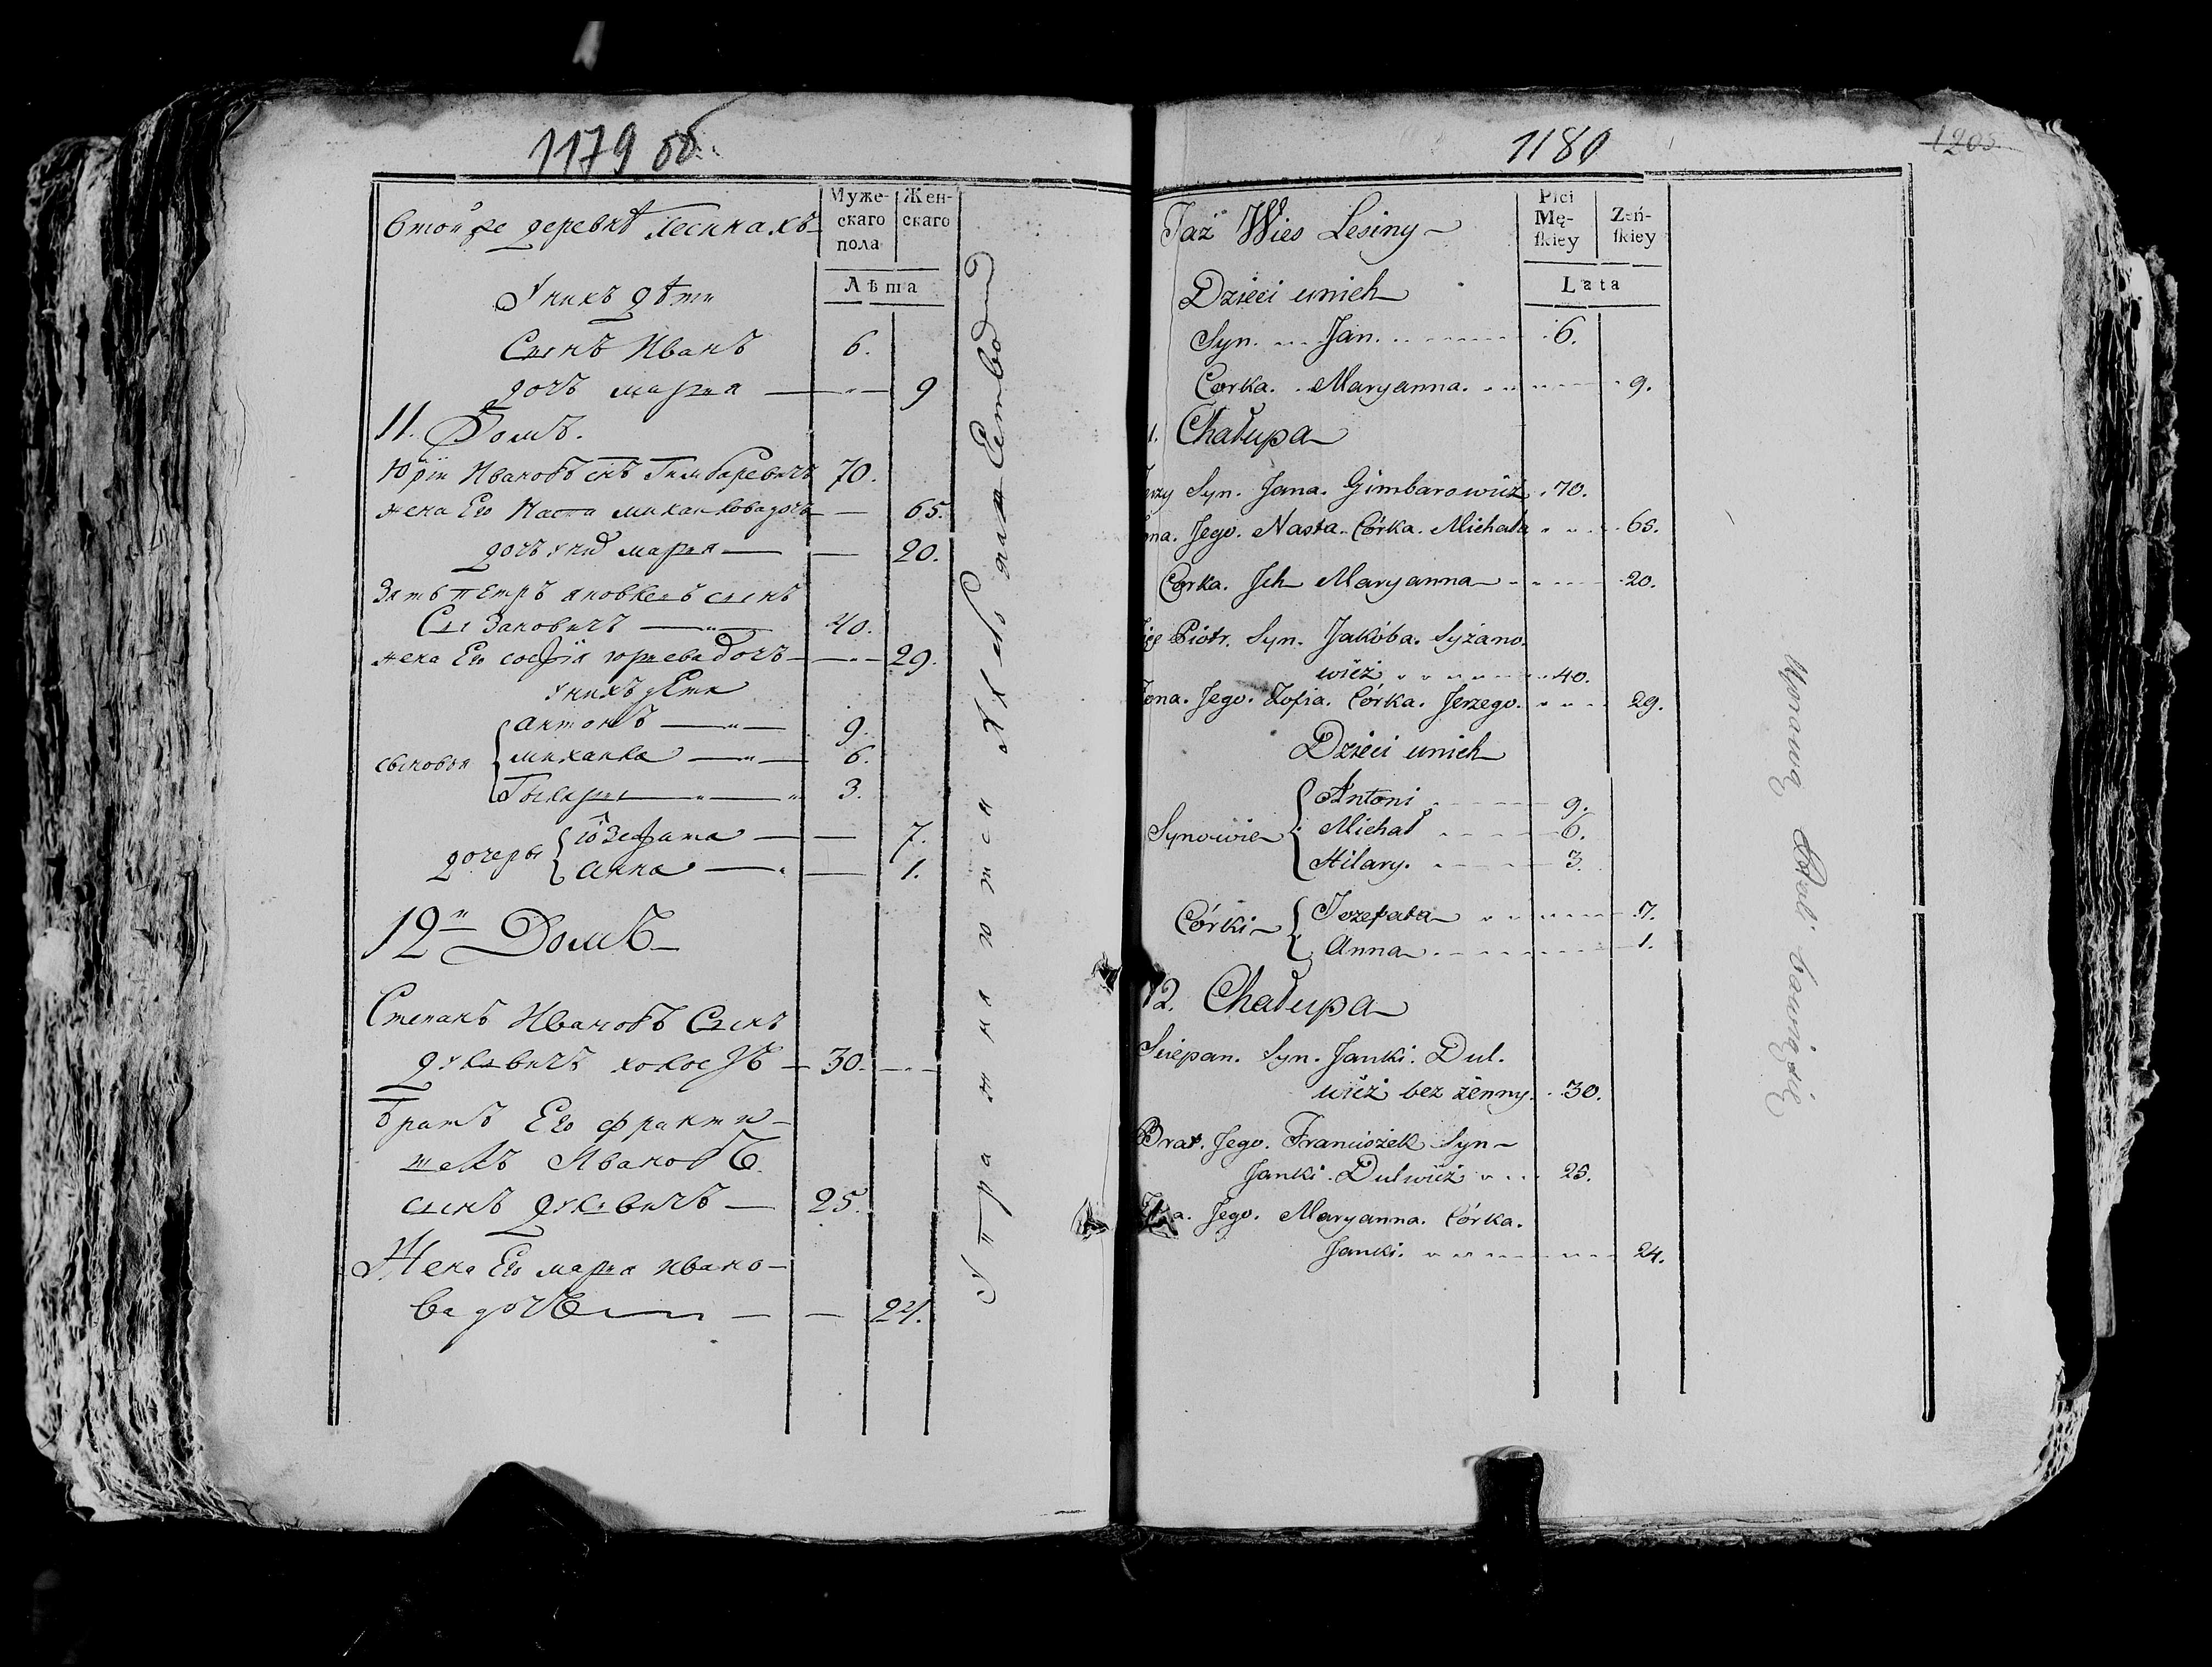 1179 об.
Втойже деревнѣ Лесинахъ
Муже-
скаго
пола
Жен-
скаго
Лѣта
Унихъ дѣти
Сынъ Иванъ 6.
дочь марья — " — 9
11. Домъ.
Юрïи Ивановъ снъ Гимбаревичъ 70.
жена Его Наста михаилова дочь — 65.
дочь ихъ марья — — 20.
Зять Петръ яковлевъ сынъ
Сызановичъ — " — 40.
жена Его софïя юрьева дочь — " — 29.
Унихъ дети
сыновья { антонъ — " — 9.
михаила — " — 6.
Гиляры — " — " 3.
дочеры { юзефата — — 7.
анна — " — 1.
12й Домъ
Степанъ Ивановъ Сынъ
дулевичъ холостъ — 30. — " —
братъ Его франти-
шекъ Ивановъ
сынъ дулевичъ — 25.
Жена Его марья ивано-
ва дочь — — 24.
Упражняются Хлебопашеством
1180
1205
Taż Wies Lesiny
Płci
Mę-
ſkiey
Żeń-
ſkiey
Lata
Dzieci unich
Syn. Jan. 6.
Corka. Maryanna. 9.
1. Chałupa
erzy Syn. Jana. Gimbarowicz. 70.
ona. Jego. Nasta. Córka. Michała 65.
Corka. Ich Maryanna 20.
ięc Piotr. Syn. Jakóba. Syzano.
wicz 40.
Żona. Jego. Zofia. Córka. Jerzego. 29.
Dzieci unich
Synowie { Antoni 9.
Michał 6.
Hilary. 3.
Córki { Jozefata 7.
Anna 1.
12. Chałupa
Sciepan. Syn. Janki. Dul.
wicz bez żenny. 30.
Brat. Jego. Franciszek Syn
Janki. Dulwicz 25.
Żona. Jego. Maryanna. Córka.
Janki. 24.
Uprawą Roli bawią się